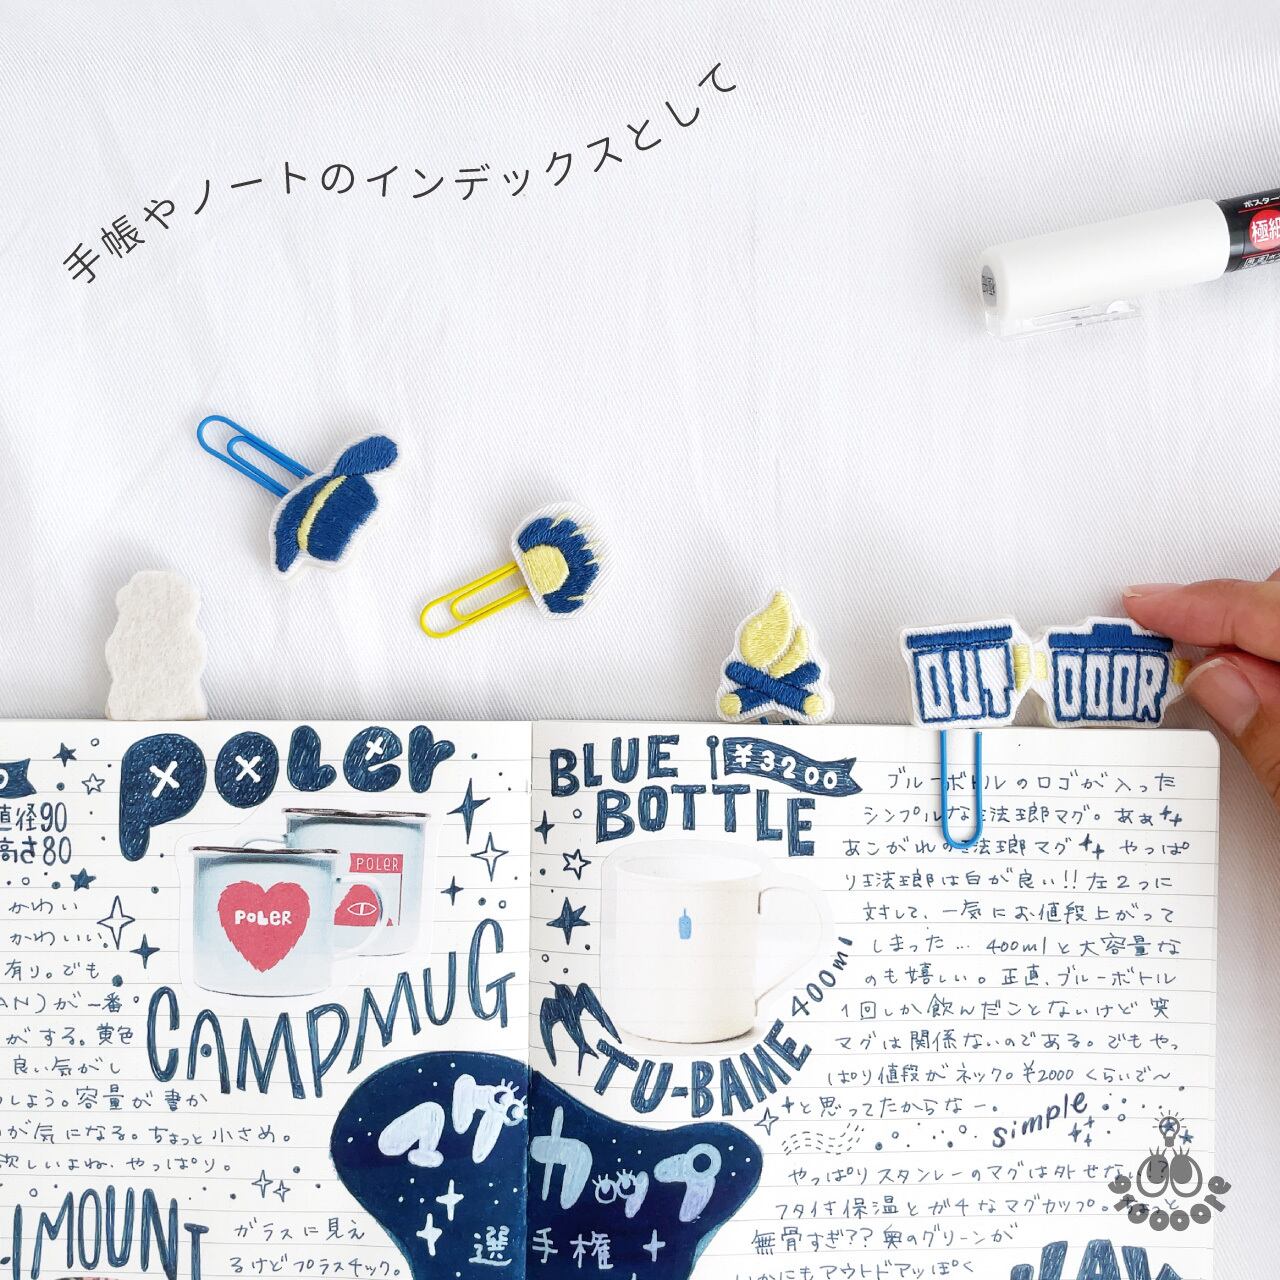 手帳やノートのインデックスとして
ポスター
極細
OUT DOOR
POLER
直径90
高さ80
POLER
POLER
CAMPMUG
かわい
かわいい。
有り。でも
AN)が一番
がする。黄色
良い気がし
しよう。容量が書か
が気になる。ちょっと小さめ。
欲しいよね。やっぱり。
MOUNT
ガラスに見え
るけどプラスチック。
BLUE
BOTTLE
¥3200
TU-BAME 400ml
ブルーボトルのロゴが入った
シンプルな法瑯マグ。あぁ
あこがれの法瑯マグ やっぱ
り琺瑯は白が良い!!左2つに
対して、一気にお値段上がって
しまった… 400mlと大容量な
のも嬉しい。正直、ブルーボトル
1回しか飲んだことないけど笑
マグは関係ないのである。でもやっ
ぱり値段がネック。¥2000くらいで〜
と思ってたからなー。
simple
やっぱりスタンレーのマグは外せない!?
フタ付き保温とガチなマグカップ。ちょっと
無骨すぎ??奥のグリーンが
いかにもアウトドアッぽく
マグカップ
選手権